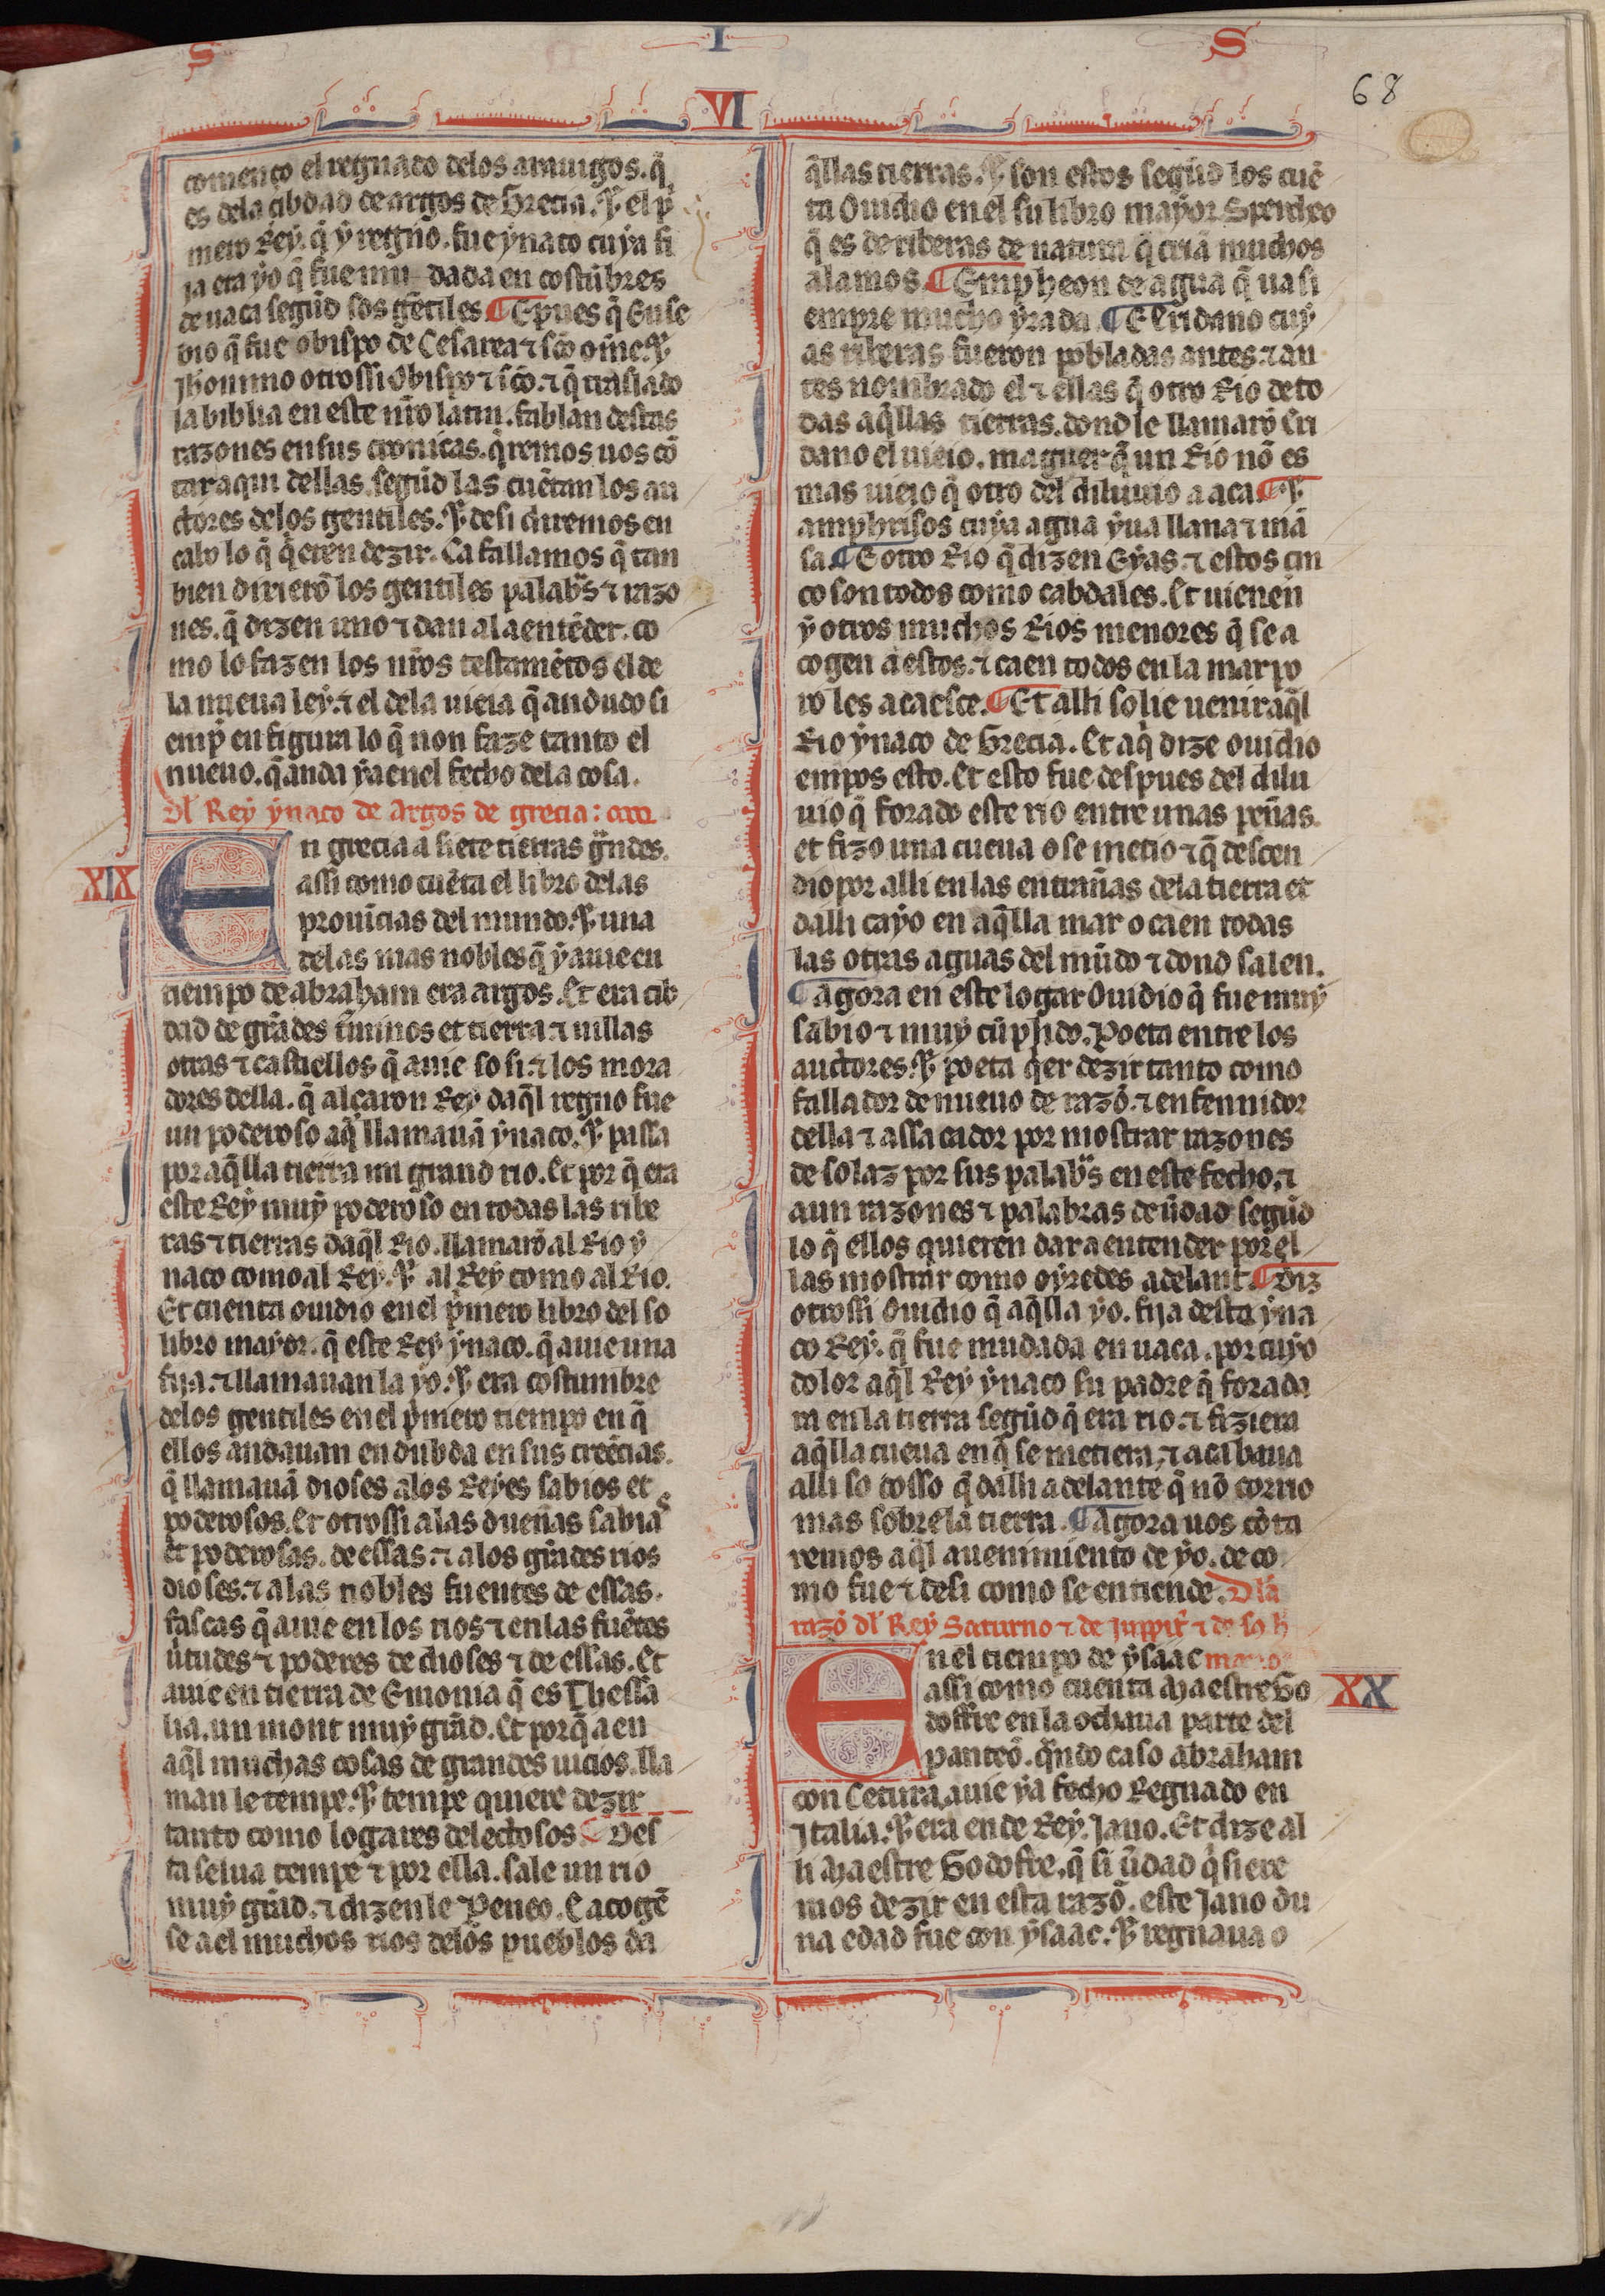 S I S
VI
68
començo el regnado delos arauigos. q̄
es dela cibdad de argos de Grecia. ⁊ el p̄
mero Rey. q̄ ẏ regno. fue ẏnaco cuẏa fi
ja era ẏo q̄ fue mu dada en costūbres
de uaca segūd sos gētiles ¶ E pues q̄ Euse
bio q̄ fue obispo de Cesarea ⁊ sc̄o om̄e. ⁊
Jhonimo otrossi obispo ⁊ sc̄o. ⁊ q̄ traslado
la biblia en este nr̄o latin. fablan destas
razones en sus cronicas. q̄remos uos cō
tar aqui dellas. segūd las cuētan los au
ctores delos gentiles. ⁊ desi diremos en
cabo lo q̄ q̄eren dezir. Ca fallamos q̄ tan
bien dixierō los gentiles palab̄s ⁊ razo
nes. q̄ dizen uno ⁊ dan ala entēder. co
mo lo fazen los nr̄os testamētos el de
la nueua leẏ. ⁊ el dela uieia q̄ anduuo si
emp̄ en figura lo q̄ non faze tanto el
nueuo. q̄ anda ẏa en el fecho dela cosa.
Dl Reẏ ẏnaco de Argos de grecia:
XIX
En grecia a siete tierras gr̄ndes.
assi como cuēta el libro delas
prouīcias del mundo. ⁊ una
delas mas nobles q̄ ẏ auie en
tiempo de abraham era argos. Et era cib
dad de grādes t̄minos et tierra ⁊ uillas
otras ⁊ castiellos q̄ auie so si. ⁊ los mora
dores della. q̄ alçaron Reẏ daq̄l regno fue
un poderoso aq̄ llamauā ẏnaco. ⁊ passa
por aq̄lla tierra un grand rio. Et por q̄ era
este Reẏ muẏ poderoso en todas las ribe
ras ⁊ tierras daq̄l Rio. llamarō al Rio ẏ
naco como al Reẏ. ⁊ al Reẏ como al Rio.
Et cuenta ouidio en el p̄mero libro del so
libro maẏor. q̄ este Reẏ ẏnaco. q̄ auie una
fija. ⁊ llamauan la ẏo. ⁊ era costumbre
delos gentiles en el p̄mero tiempo en q̄
ellos andauan en dubda en sus creēcias.
q̄ llamauā dioses alos Reẏes sabios et
poderosos. Et otrossi alas dueñas sabias
et poderosas. deessas. ⁊ alos grādes rios
dioses. ⁊ alas nobles fuentes deessas.
fascas q̄ auie en los rios ⁊ en las fuētes
ūtudes ⁊ poderes de dioses ⁊ deessas. Et
auie en tierra de Emonia q̄ es Thessa
lia. un mont muẏ grād. Et porq̄ a en
aq̄l muchas cosas de grandes uicios. lla
man le tempe. ⁊ tempe quiere dezir
tanto como logares delectosos ¶ Des
ta selua tempe ⁊ por ella. sale un rio
muẏ grād. ⁊ dizenle Peneo. E acogē
se a el muchos rios delos pueblos da
q̄llas tierras. ⁊ son estos segūd los cuē
ta Ouidio en el su libro maẏor. Spercheo
q̄ es de riberas de natura q̄ criā muchos
alamos. ¶ Empheon de agua q̄ ua si
empre mucho ẏrada ¶ E Eridano cuẏ
as riberas fueron pobladas antes. ⁊ an
tes nombrado el ⁊ ellas q̄ otro Rio de to
das aq̄llas tierras. dond le llamarō Eri
dano el uieio. maguer q̄ un Rio nō es
mas uieio q̄ otro del diluuio a aca ¶ ⁊
amphrisos cuẏa agua ẏua llana ⁊ mā
sa. ¶ E otro Rio q̄ dizen Eẏas. ⁊ estos cin
co son todos como cabdales. Et uienen
ẏ otros muchos Rios menores q̄ se a
cogen a estos. ⁊ caen todos en la mar po
ro les acaesce. ¶ Et alli solie uenir aq̄l
Rio ẏnaco de Grecia. Et aq̄ dize ouidio
empos esto. Et esto fue despues del dilu
uio q̄ forado este rio entre unas peñas.
et fizo una cueua o se metio ⁊ q̄ descen
dio por alli en las entrañas dela tierra et
dalli caẏo en aq̄lla mar o caen todas
las otras aguas del mūdo ⁊ dond salen.
¶ agora en este logar Ouidio q̄ fue muẏ
sabio ⁊ muẏ cūplido. Poeta entre los
auctores. ⁊ poeta q̄er dezir tanto como
fallador de nueuo de razō. ⁊ enfennidor
della ⁊ assacador por mostrar razones
de solaz por sus palab̄s en este fecho. ⁊
aun razones ⁊ palabras de ūdad segūd
lo q̄ ellos quieren dar a entender por el
las mostrar como oẏredes adelant. ¶ Diz
otrossi Ouidio q̄ aq̄lla ẏo. fija desta ẏna
co Reẏ. q̄ fue mudada en uaca. por cuẏo
dolor aq̄l Reẏ ẏnaco su padre q̄ forada
ra en la tierra segūd q̄ era rio. ⁊ fiziera
aq̄lla cueua en q̄ se metiera, ⁊ acabaua
alli so cosso q̄ dalli adelante q̄ nō corrio
mas sobre la tierra. ¶ agora uos cōta
remos aq̄l auenimiento de ẏo. de co
mo fue ⁊ desi como se entiende. Dla
razō dl Reẏ Saturno ⁊ de Jupiter ⁊ de so h
XX
En el tiempo de ẏsaac
assi como cuenta Maestre Go
doffre en la ochaua parte del
panteō. qndo caso abraham
con Cetura, auie ẏa fecho Regnado en
ẏtalia. ⁊ era ende Reẏ. Jano. Et dize al
li Maestre Godofre. q̄ si ūdad q̄siere
mos dezir en esta razō. este Jano du
na edad fue con ẏsaac. ⁊ regnaua o